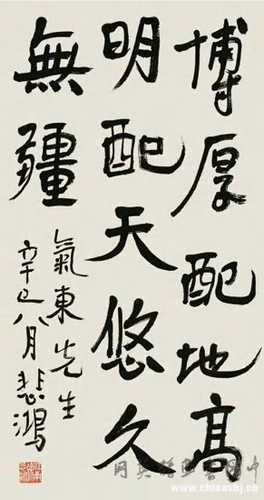 博厚配地高
明配天悠久
無疆
氣東先生
辛巳八月悲鴻
www.chinashj.com